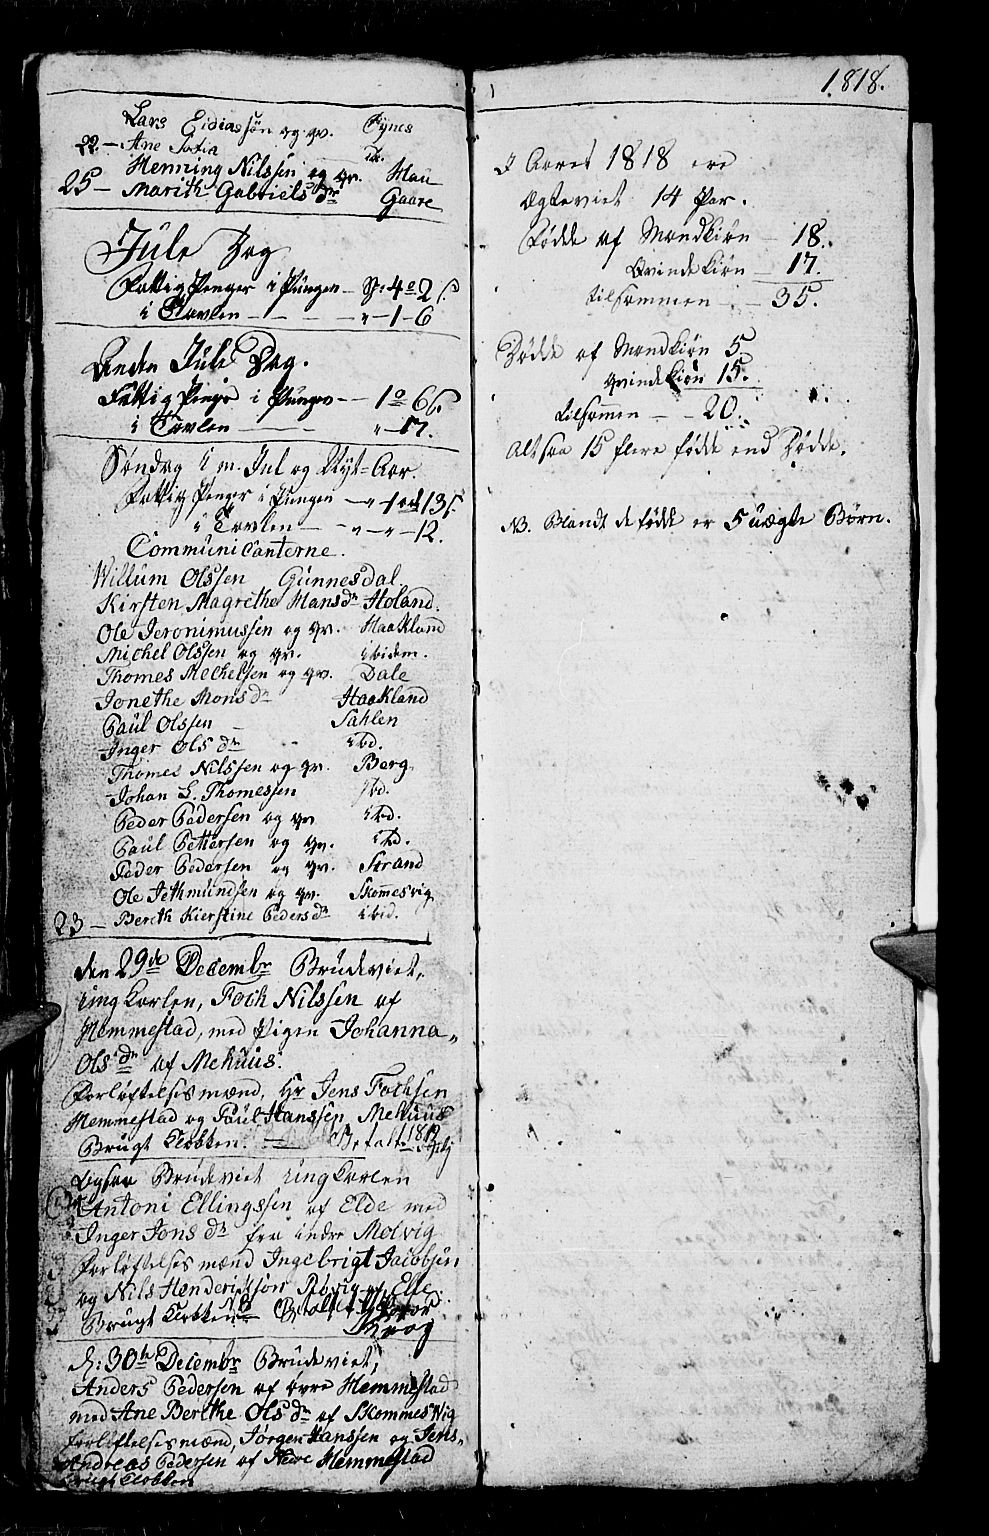 Lars Eidiassøn og qv. Øynes
22. — Ane Sofia do.
Henning Nilssen og qv. Hau
25 — Marith Gabriels dr Gaare
Jule Dag
Fattig Penger i Pungen — 4 o 2 s
i Tavlen — „ — 1 — 6
Anden Jule Dag.
Fattig Penge i Pungen — 1 o 6 s.
i Tavlen — „ — 17.
Søndag i m. Jul og Nyt-Aar.
Fattig Penger i Pungen — „ — 1 ort 13 s.
i Tavlen — „ — „ — 12.
Communicanterne.
Willum Olssen Gunnesdal
Kirsten Magrethe Hans dr Holand.
Ole Jeronimussen og qv. Haakland
Michel Olssen og qv. ibidem.
Thomes Mechelsen og qv. Dale
Jonethe Mons dr Haakland
Paul Olssen Sahlen
Inger Ols dr ibd.
Thomes Nilssen og qv. Berg
Johan S. Thomessen ibd.
Peder Pedersen og qv ibd.
Paul Pettersen og qv. ibd.
Peder Pedersen og qv. Strand
Ole Jethmundsen og qv. Skommesvig
23 — Bereth Kierstine Peders dr ibid.
den 29de Decembr Brudeviet,
Ung Karlen, Foch Nilssen af
Hemmestad, med Pigen Johanna
Ols dr af Mehuus.
Forløftelsesmænd, Hr Jens Fochsen
Hemmestad og Paul Hanssen Mehuus
Brugt Klokken. — Betalt 1819
Ligesaa Brudeviet Ung Karlen
Antoni Ellingssen af Elde med
Inger Jons dr fra indre Molvig
Forløftelses mænd Ingebrigt Jacobsen
og Nils Hendericksøn af Elde
Brugt Klokken Betalt
Krog
d: 30te Decembr Brudeviet,
Anders Pedersen af øvre Hemmestad
med Ane Berthe Ols dr af Skommesvig
forløftelsesmænd, Jørgen Hanssen og Jens
Andreas Pedersen af Nedre Hemmestad
Brugt Klokken
1818.
I Aaret 1818 ere
Ægteviet 14 Par.
Fødde af Mandkiøn — 18.
Qvindekiøn — 17.
tilsammen — 35.
Dødde af Mandkiøn 5.
qvindekiøn 15.
tilsamen — 20.
Altsaa 15 flere fødde end Dødde.
NB. Blandt de fødde er 5 uægte Børn.